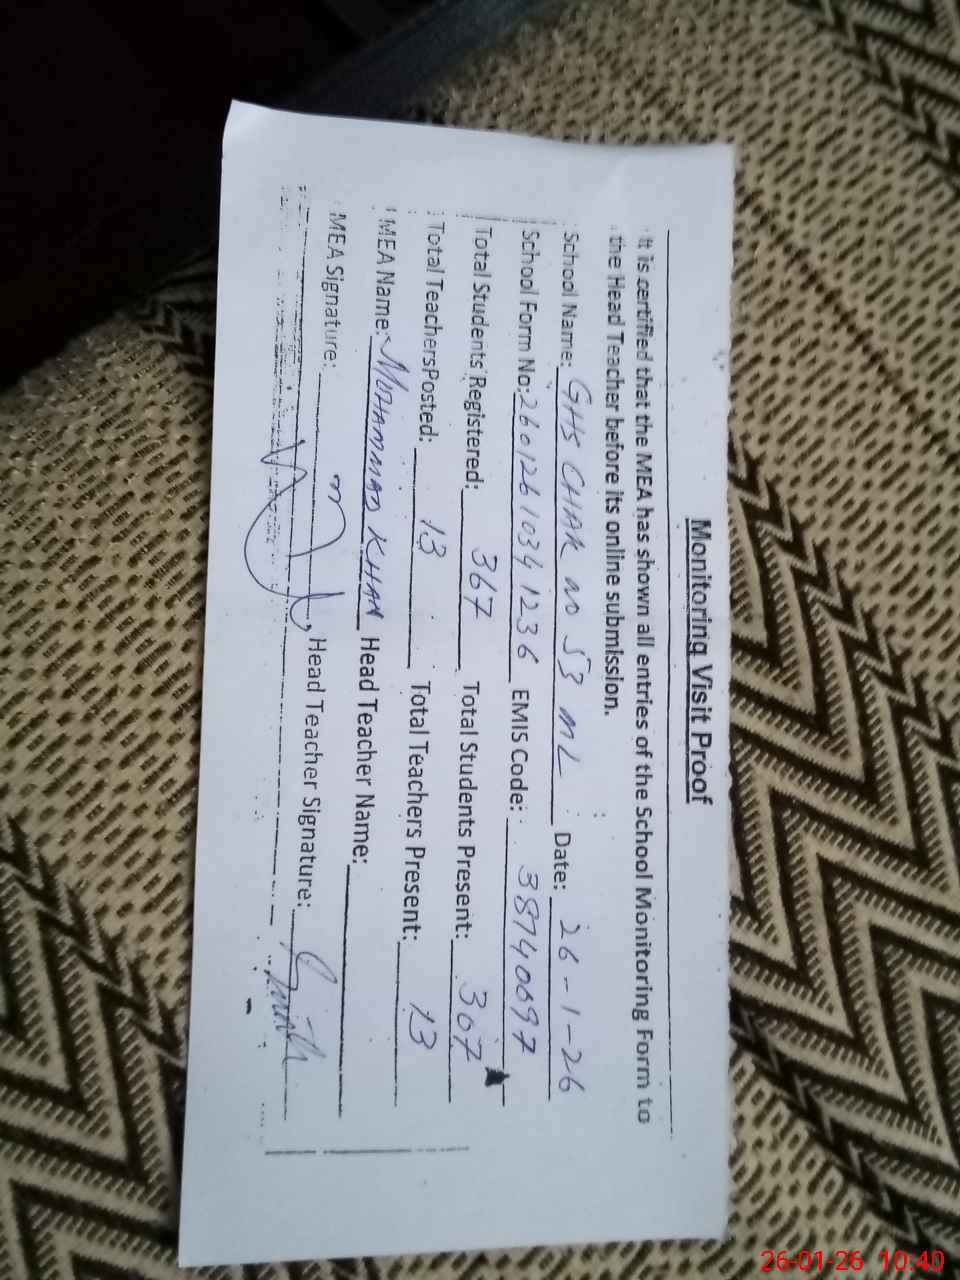 Monitoring Visit Proof
It is certified that the MEA has shown all entries of the School Monitoring Form to
the Head Teacher before its online submission.
School Name: GHS CHAK no 53 mL Date: 26-1-26
School Form No: 26012610341236 EMIS Code: 38740697
Total Students Registered: 367 Total Students Present: 307
Total TeachersPosted: 13 Total Teachers Present: 13
MEA Name: MOHAMMAD KHAN Head Teacher Name:
MEA Signature: Head Teacher Signature:
26-01-26 10:40